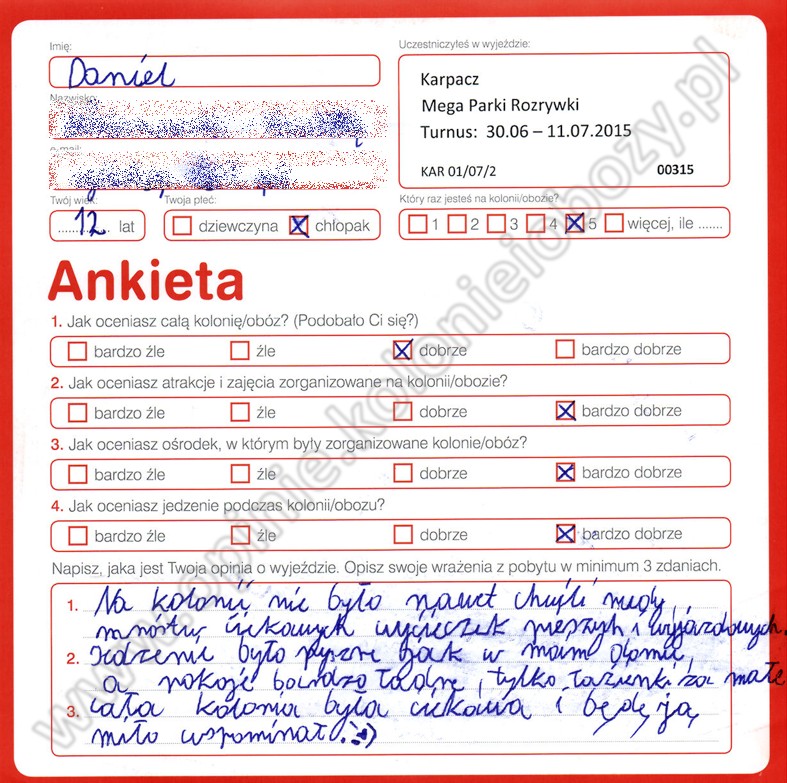 Imię:
Daniel
Nazwisko:
e-mail:
Twój wiek:
12 lat
Twoja płeć:
dziewczyna chłopak
Uczestniczyłeś w wyjeździe:
Karpacz
Mega Parki Rozrywki
Turnus: 30.06 – 11.07.2015
KAR 01/07/2 00315
Który raz jesteś na kolonii/obozie?
1 2 3 4 5 więcej, ile .......
Ankieta
1. Jak oceniasz całą kolonię/obóz? (Podobało Ci się?)
bardzo źle źle dobrze bardzo dobrze
2. Jak oceniasz atrakcje i zajęcia zorganizowane na kolonii/obozie?
bardzo źle źle dobrze bardzo dobrze
3. Jak oceniasz ośrodek, w którym były zorganizowane kolonie/obóz?
bardzo źle źle dobrze bardzo dobrze
4. Jak oceniasz jedzenie podczas kolonii/obozu?
bardzo źle źle dobrze bardzo dobrze
Napisz, jaka jest Twoja opinia o wyjeździe. Opisz swoje wrażenia z pobytu w minimum 3 zdaniach.
1. Na kolonii nie było nawet chwili nudy,
mnóstwo ciekawych wycieczek pieszych i wyjazdowych.
2. Jedzenie było pyszne jak w moim domu,
a pokoje bardzo ładne, tylko łazienki za małe
3. cała kolonia była ciekawa i będę ją
miło wspominał. :)
www.opinie.kolonieiobozy.pl